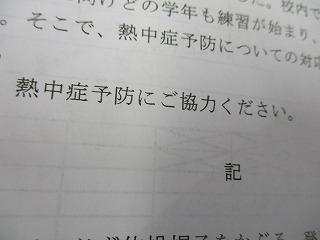 向けどの学年も練習が始まり、
。そこで、熱中症予防についての対応
熱中症予防にご協力ください。
記